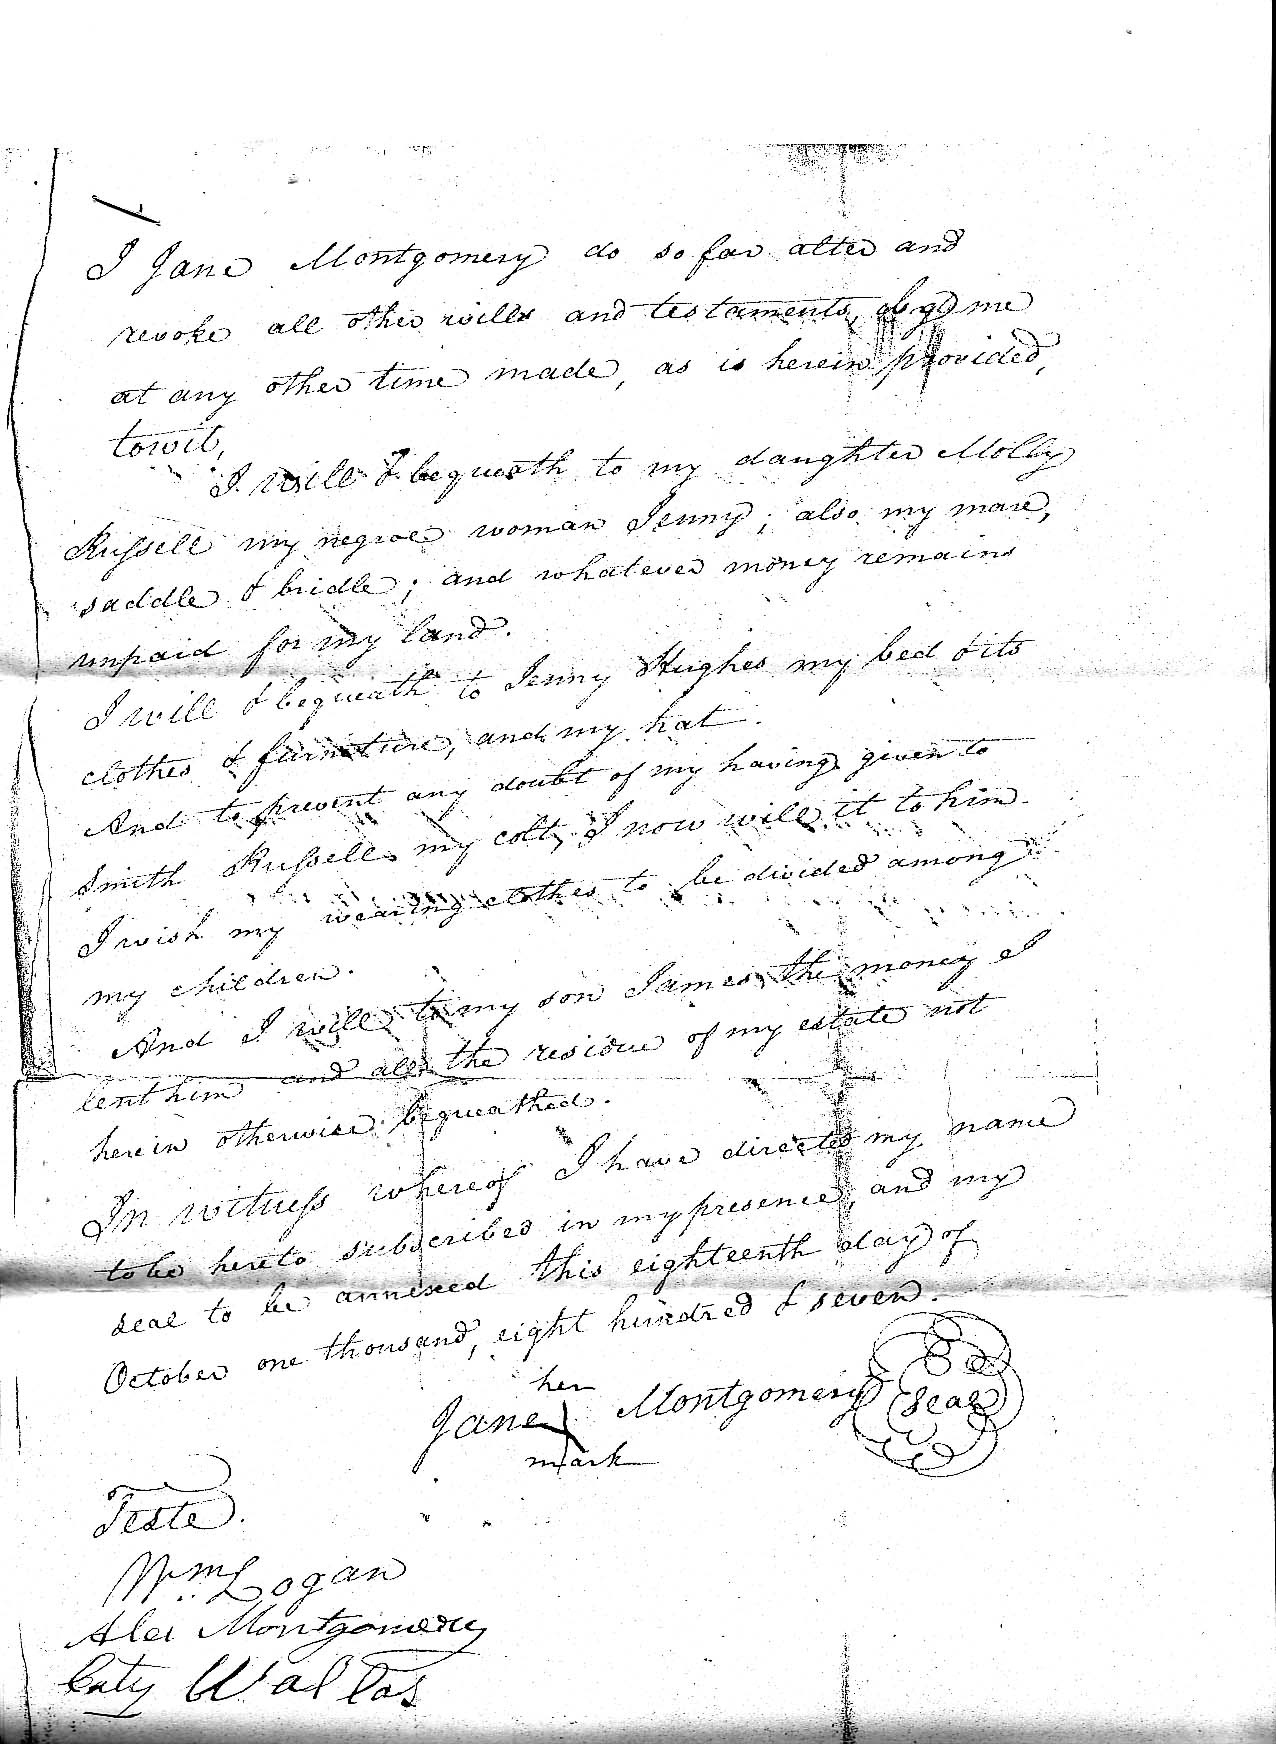 I Jane Montgomery do so far alter and
revoke all other wills and testaments, by me
at any other time made, as is herein provided,
towit,
I will & bequeath to my daughter Molly
Russell my negroe woman Jenny; also my mare,
saddle & bridle; and whatever money remains
unpaid for my land.
I will & bequeath to Jenny Hughes my bed & its
clothes & furniture, and my hat.
And to prevent any doubt of my having given to
Smith Russell my colt, I now will it to him.
I wish my wearing clothes to be divided among
my children.
And I will to my son James the money I
lent him and all the residue of my estate not
herein otherwise bequeathed.
In witness whereof I have directed my name
to be hereto subscribed in my presence, and my
seal to be annexed this eighteenth day of
October one thousand, eight hundred & seven.
her
Jane Montgomery Seal
mark
Teste.
Wm. Logan
Alex Montgomery
Caty Wallas